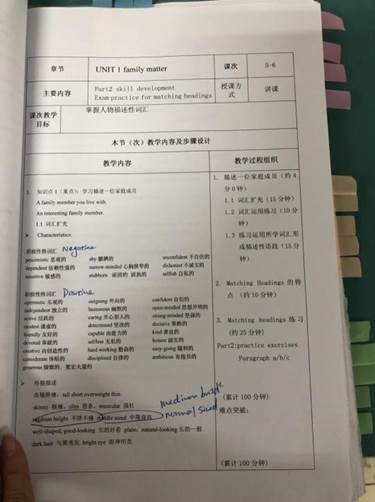 章节 UNIT 1 family matter 课次 5-6
主要内容 Part2 skill development
Exam practice for matching headings 授课方式 讲课
课次教学目标 掌握人物描述性词汇
本节（次）教学内容及步骤设计
教学内容 教学过程组织
知识点 1（重点）：学习描述一位家庭成员
A family member you live with.
An interesting family member.
1.1 词汇扩充
Characteristics
消极性格词汇 Negative
pessimistic 悲观的 shy 腼腆的 unconfident 不自信的
dependent 依赖性强的 narrow-minded 心胸狭窄的 dishonest 不诚实的
sensitive 敏感的 stubborn 顽固的 selfish 自私的
积极性格词汇 Positive
optimistic 乐观的 outgoing 外向的 confident 自信的
independent 独立的 humorous 幽默的 open-minded 思想开明的
active 活跃的 caring 关心别人的 strong-minded 坚强的
modest 谦虚的 determined 坚决的 decisive 果断的
friendly 友好的 capable 有能力的 kind 善良的
devoted 奉献的 selfless 无私的 honest 诚实的
creative 有创造性的 hard working 勤奋的 easy-going 随和的
considerate 体贴的 disciplined 自律的 ambitious 有抱负的
generous 慷慨的，宽宏大量的
外貌描述
tall short overweight thin
skinny slim 苗条, muscular 强壮
medium height 不胖不瘦 middle sized 中等身高
medium built
normal sized
well-shaped, good-looking 长的好看 plain; natural-looking 长的一般
dark hair bright eye 眼神明亮
1. 描述一位家庭成员（约 40 分钟）
1.1 词汇扩充（15 分钟）
1.2 词汇运用练习（10 分钟）
1.3 练习运用所学词汇形成描述性语段（15 分钟）
2. Matching Headings 的特点 （约 10 分钟）
3. Matching headings 练习（约 25 分钟）
Part2:practice exercises
Paragraph a/b/c
（累计 100 分钟）
难点突破：
（累计 100 分钟）